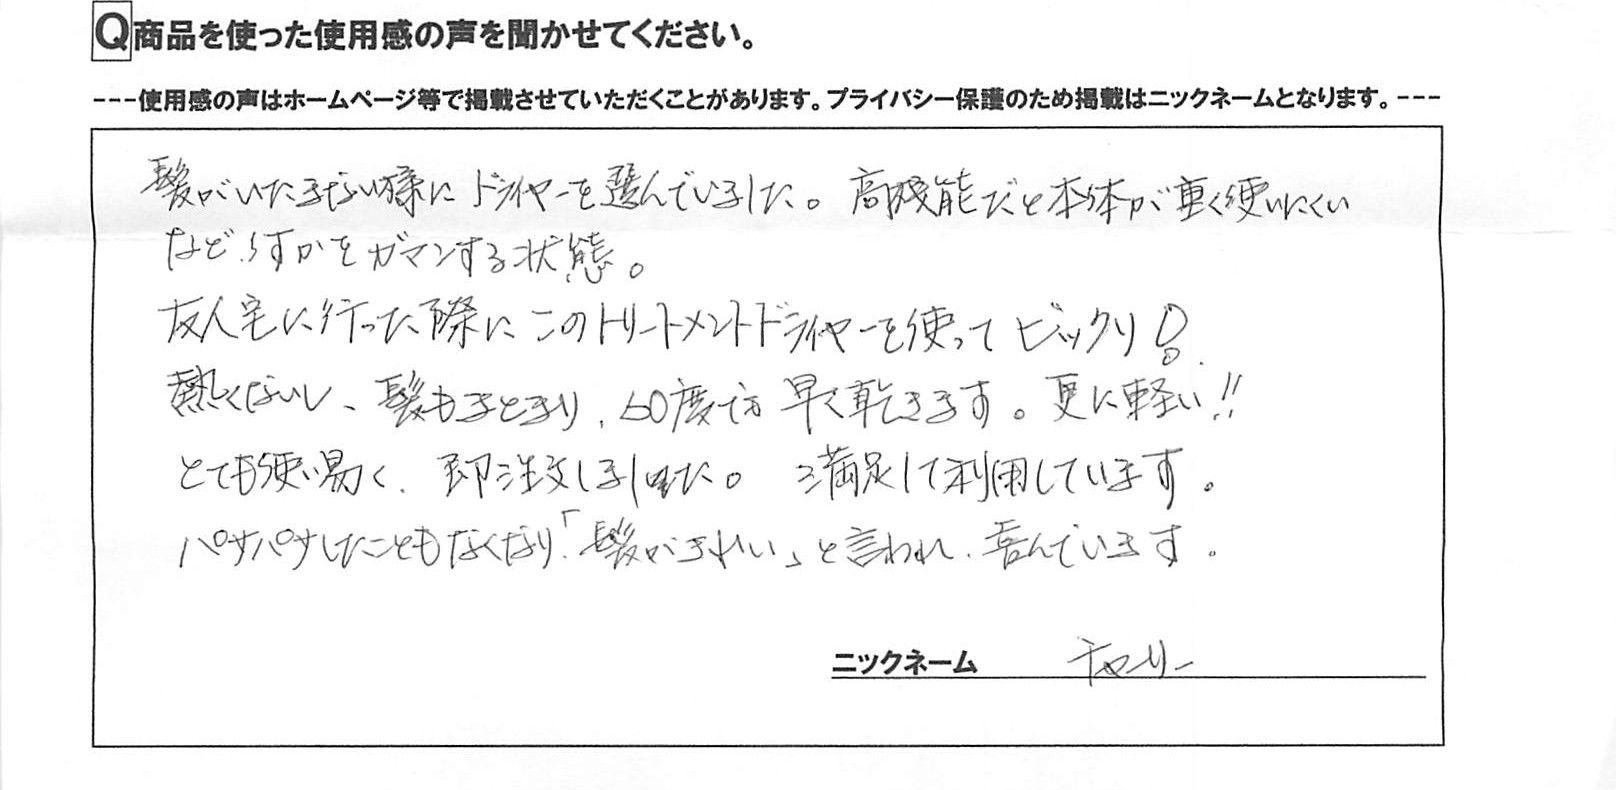 Q商品を使った使用感の声を聞かせてください。
---使用感の声はホームページ等で掲載させていただくことがあります。プライバシー保護のため掲載はニックネームとなります。---
髪がいたまない様にドライヤーを選んでいました。高機能だと本体が重く使いにくい
など、何かをガマンする状態。
友人宅に行った際にこのトリートメントドライヤーを使ってビックリ!
熱くないし、髪もまとまり、60度でも早く乾きます。更に軽い!!
とても使い易く、即注文しました。満足して利用しています。
パサパサしたこともなくなり、「髪がきれい」と言われ、喜んでいます。
ニックネーム チャーリー